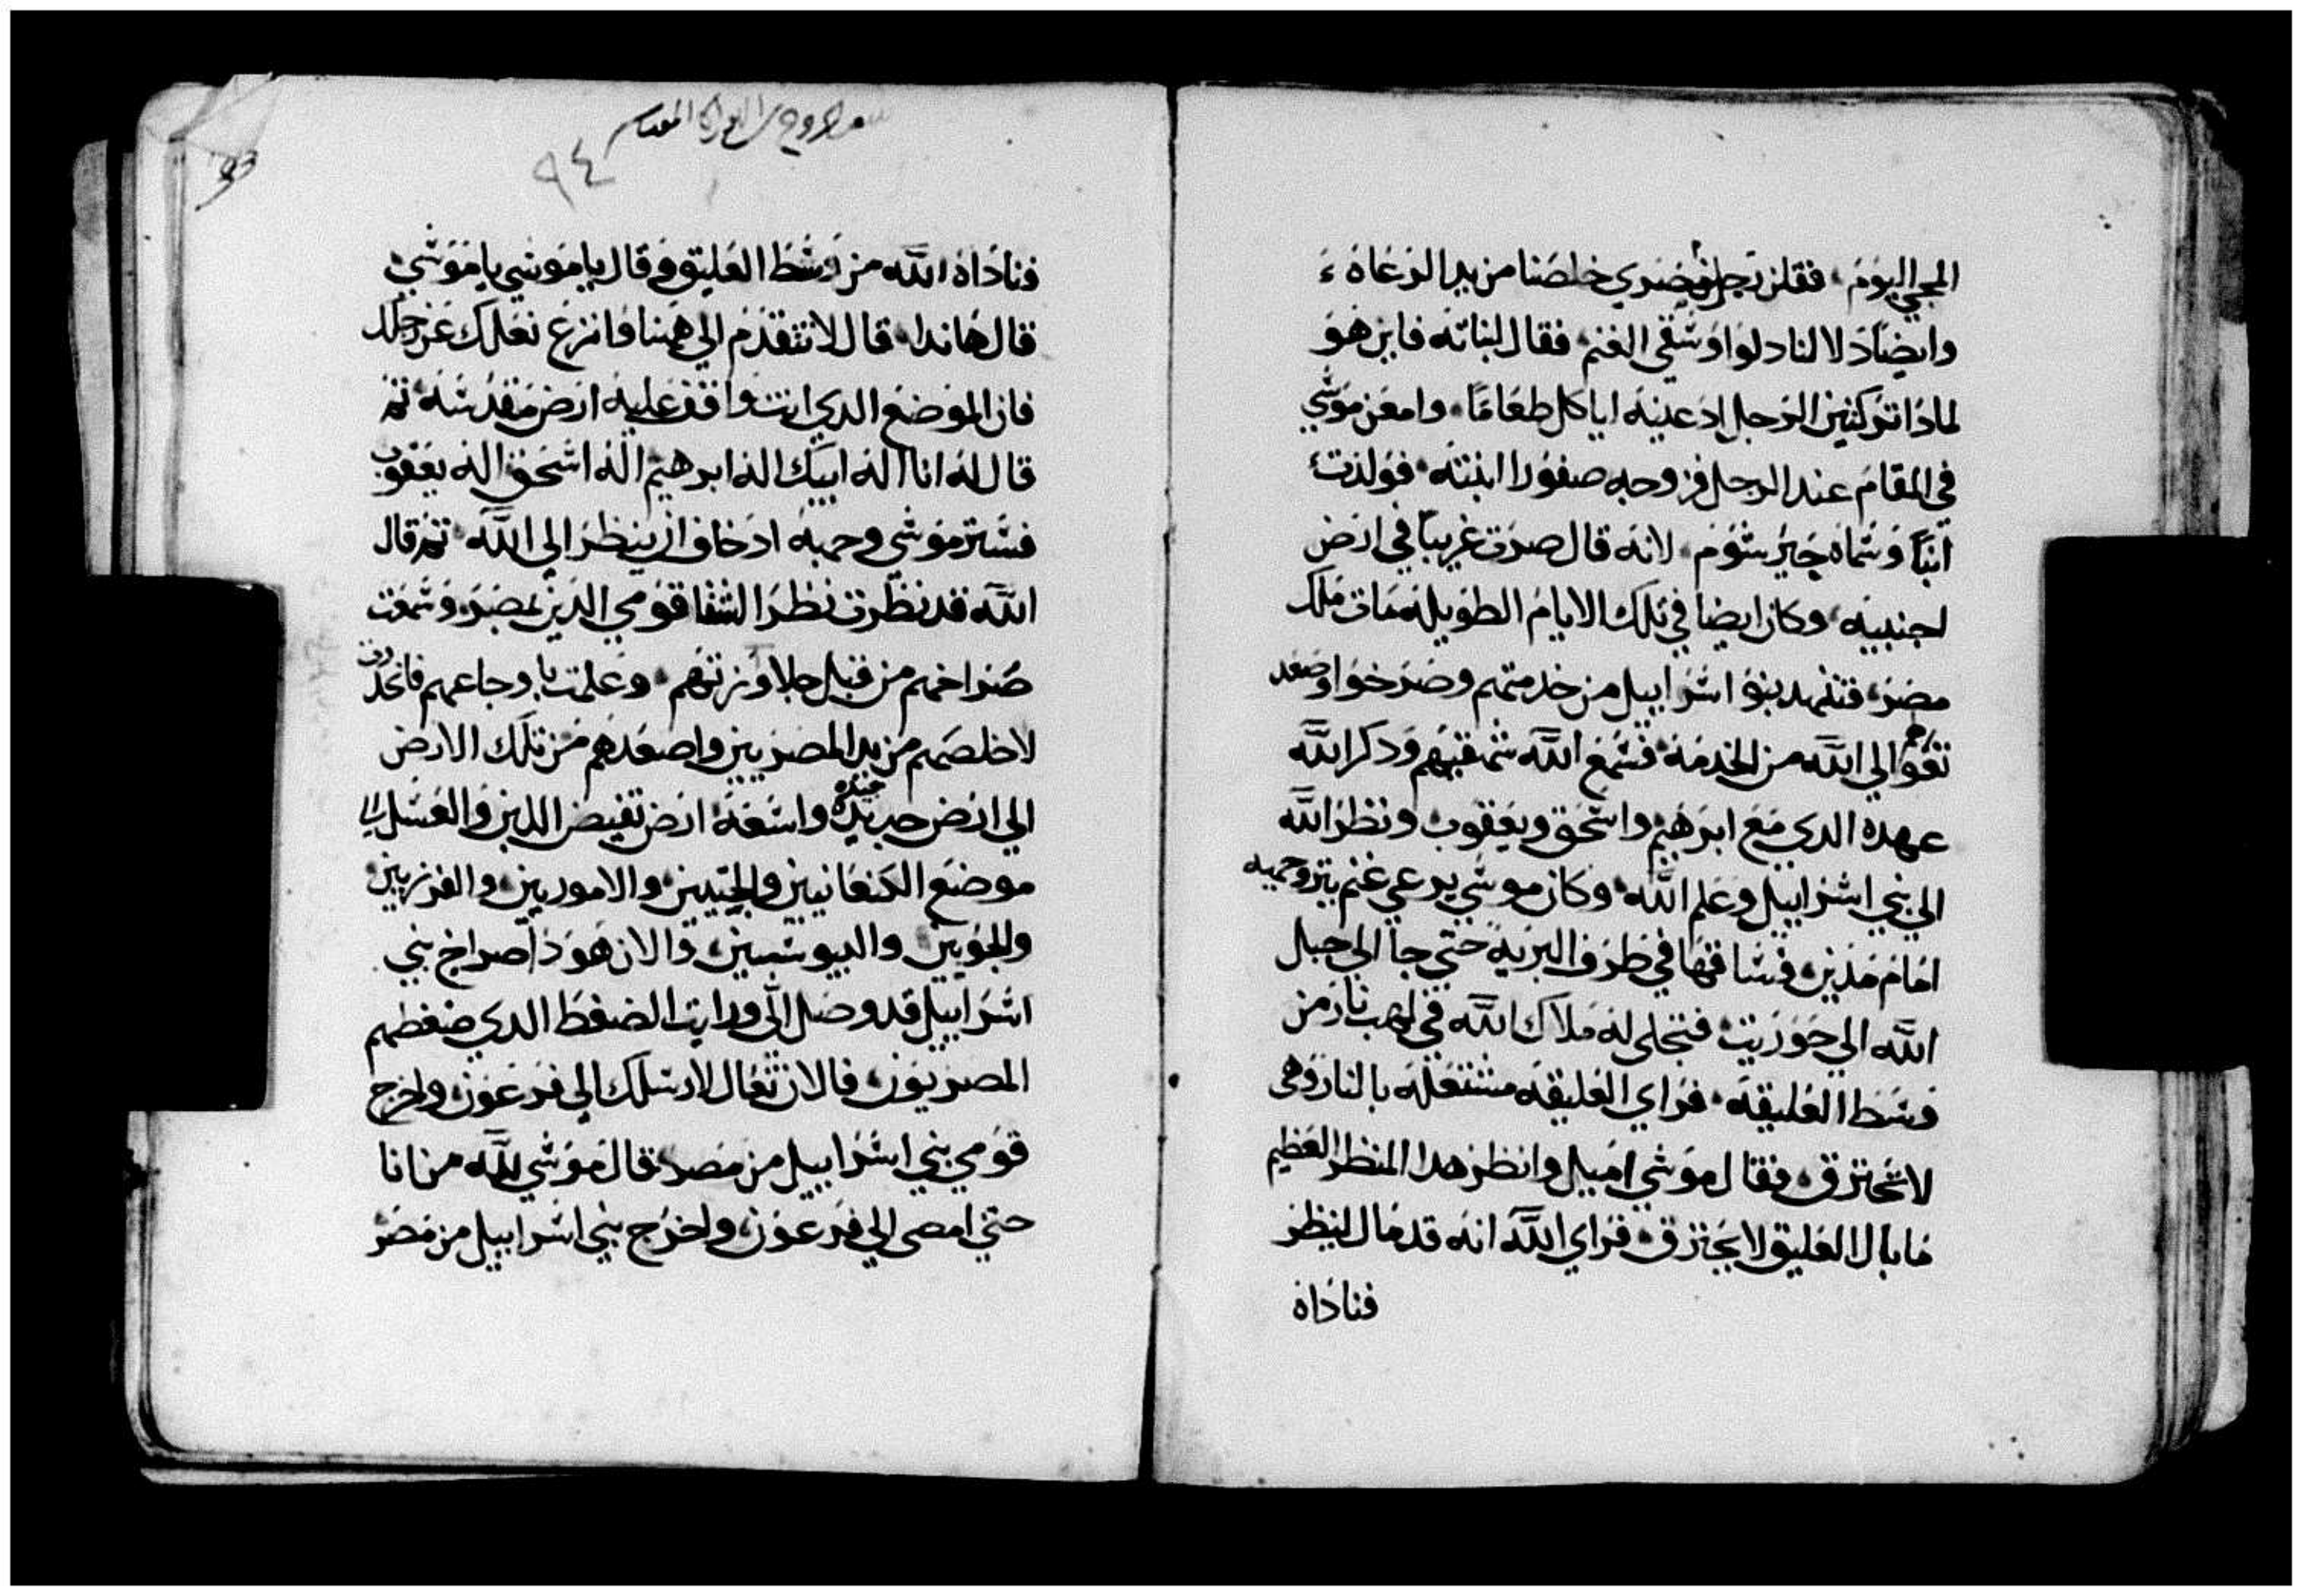 المجي اليوم فقلن رجل مصري خلصنا من يد الرعاه
وايضا دلا لنا دلوا وسقي الغنم فقال لبناته فاين هو
لمادا تركتين الرجل ادعينه اياكل طعاما وامعن موسي
في المقام عند الرجل فزوجه صفورا ابنته فولدت
ابنا وسماه جيرشوم لانه قال صرت غريبا في ارض
اجنبيه وكان ايضا في تلك الايام الطويله مات ملك
مصر فتنهد بنو اسراييل من خدمتهم وصرخوا وصعد
تغوا الي الله من الخدمه فسمع الله شهقتهم ودكر الله
عهده الدي مع ابرهيم واسحق ويعقوب ونظر الله
الي بني اسراييل وعلم الله وكان موسي يرعي غنم يترو حميه
امام مدين فساقها في طرف البريه حتي جا الي جبل
الله الي حوريت فتجلي له ملاك الله في لهب نار من
وسط العليقه فراي العليقه مشتعله بالنار وهي
لا تحترق فقال موسي اميل وانظر هدا المنظر العظيم
ما بال العليق لا يحترق فراي الله انه قد مال لينظر
فناداه
٩٤
93
فناداه الله من وسط العليق وقال يا موسي يا موسي
قال هاندا قال لا تتقدم الي ههنا وانزع نعلك عن رجلك
فان الموضع الدي انت واقف عليه ارض مقدسه تم
قال له انا اله ابيك اله ابرهيم اله اسحق اله يعقوب
فستر موسي وجهه اد خاف ان ينظر الي الله تم قال
الله قد نظرت نظرا لشقا قومي الدين بمصر وسمعت
صراخهم من قبل جلاوزتهم وعلمت باوجاعهم فانحدرت
لاخلصهم من يد المصريين واصعدهم من تلك الارض
الي ارض جديده جيده واسعه ارض تفيض اللبن والعسل الي
موضع الكنعانيين والحتيين والاموريين والفرزيين
والحويين واليبوسيين والان هودا صراخ بني
اسراييل قد وصل الي ورايت الضغط الدي ضغطهم
المصريون فالان تعال لارسلك الي فرعون واخرج
قومي بني اسراييل من مصر قال موسي لله من انا
حتي امضي الي فرعون واخرج بني اسراييل من مصر